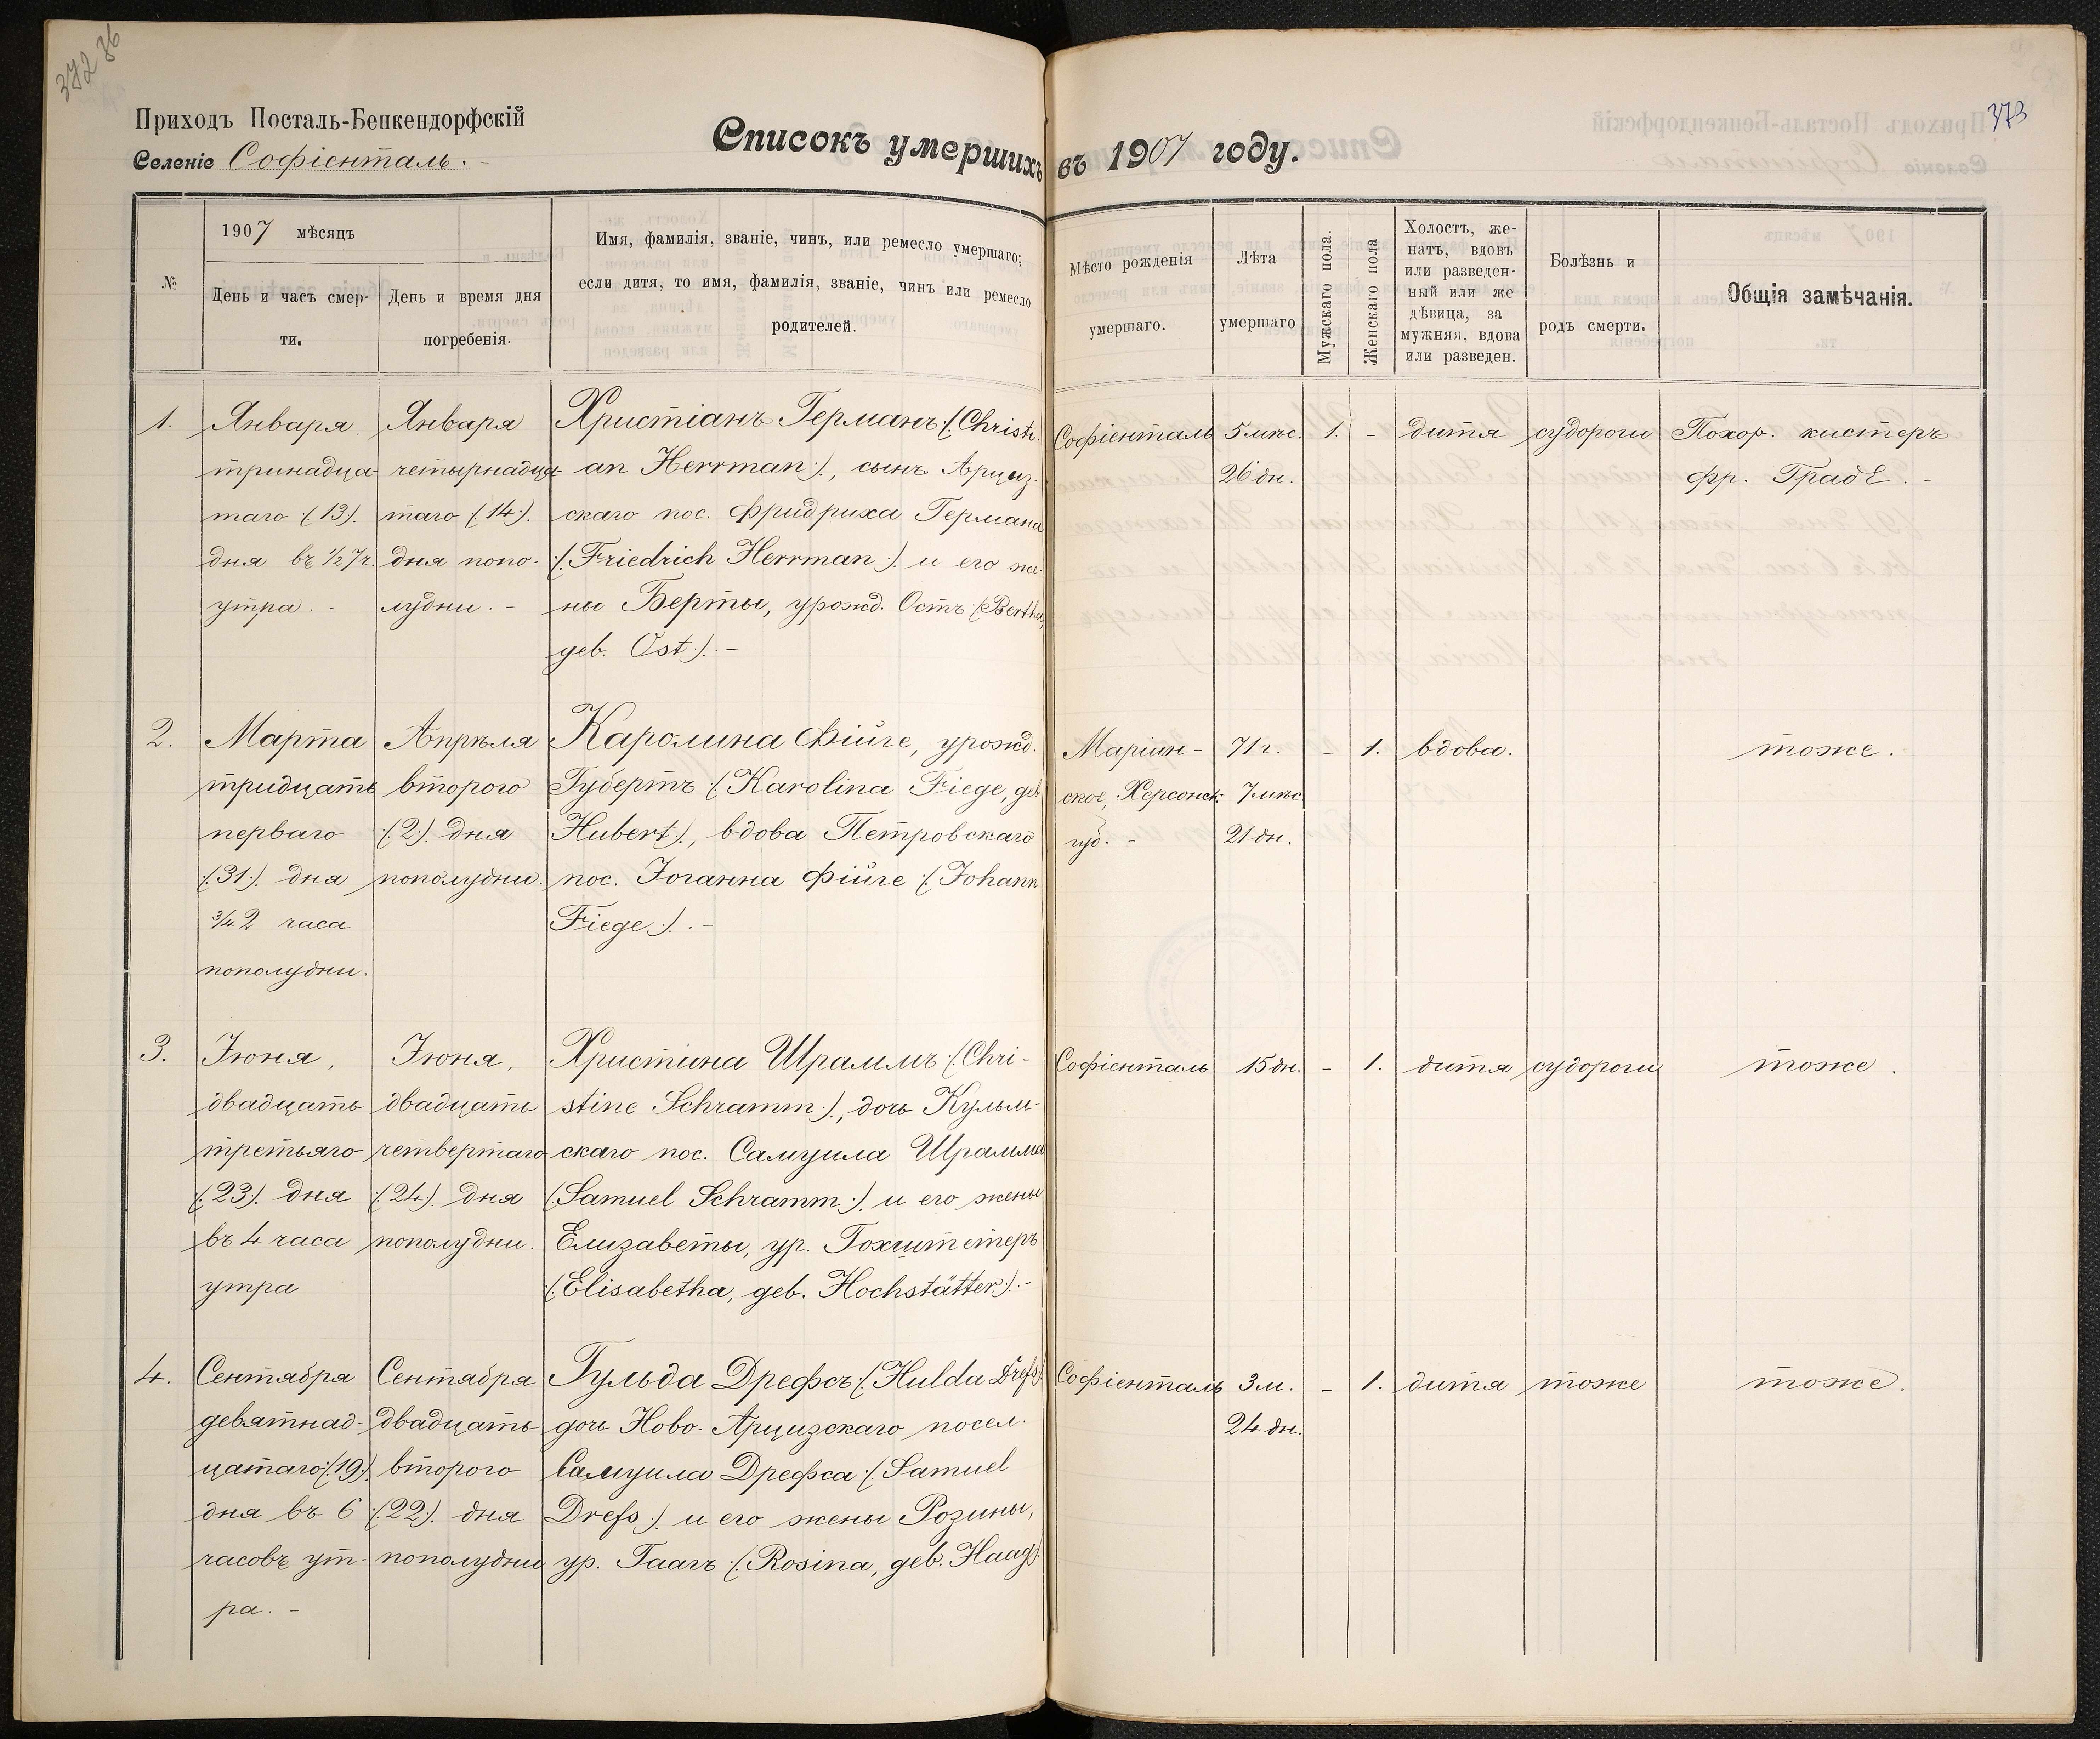 372 36
Приходъ Посталь-Бенкендорфскій
Селеніе Софіенталь. -
Списокъ умершихъ въ 1907 году.
373
№
1907 мѣсяцъ
День и часъ смер-
ти.
День и время дня
погребенія.
Имя, фамилія, званіе, чинъ, или ремесло умершаго;
если дитя, то имя, фамилія, званіе, чинъ или ремесло
родителей.
Мѣсто рожденія
умершаго.
Лѣта
умершаго
Мужскаго пола.
Женскаго пола
Холостъ, же-
натъ, вдовъ
или разведен-
ный или же
дѣвица, за
мужняя, вдова
или разведен.
Болѣзнь и
родъ смерти.
Общія замѣчанія.
1.
Января
тринадца-
таго (:13:).
дня въ ½7ч.
утра. -
Января
четырнадца-
таго (:14:).
дня попо-
лудни. -
Христіанъ Германъ (:Christi-
an Herrman:), сынъ Арциз-
скаго пос. Фридриха Германа
(:Friedrich Herrman:) и его же-
ны Берты, урожд. Остъ (:Bertha,
geb. Ost:). -
Софіенталь
5 мѣс.
26 дн.
1.
-
дитя
судороги
Похор. кистеръ
Фр. Граде. -
2.
Марта
тридцать
перваго
(:31:). дня
¾2 часа
пополудни.
Апрѣля
второго
(:2:). дня
пополудни.
Каролина Фійге, урожд.
Губертъ (:Karolina Fiege, geb.
Hubert:), вдова Петровскаго
пос. Іоганна Фійге (:Johann
Fiege:). -
Маріин-
ское, Херсонск.
губ. -
71 г.
7 мѣс.
21 дн.
-
1.
вдова.
тоже.
3.
Іюня,
двадцать
третьяго
(:23:). дня
въ 4 часа
утра
Іюня,
двадцать
четвертаго
(:24:). дня
пополудни.
Христина Шраммъ (:Chri-
stine Schramm:), дочь Кульм-
скаго пос. Самуила Шрамма
(:Samuel Schramm:) и его жены
Елизаветы, ур. Гохштетеръ
(:Elisabetha, geb. Hochstätter:). -
Софіенталь
15 дн.
-
1.
дитя
судороги
тоже.
4.
Сентября
девятнад-
цатаго (:19:).
дня въ 6
часовъ ут-
ра. -
Сентября
двадцать
второго
(:22:). дня
пополудни
Гульда Дрефсъ (:Hulda Drefs:)
дочь Ново-Арцизскаго посел.
Самуила Дрефса (:Samuel
Drefs:) и его жены Розины,
ур. Гаагъ (:Rosina, geb. Haag:)
Софіенталь
3 м.
24 дн.
-
1.
дитя
тоже
тоже.